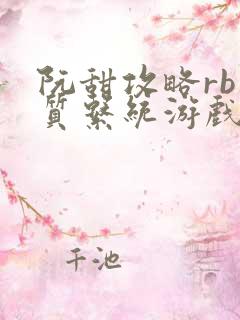 阮甜攻略rb
質系統游戲
千池